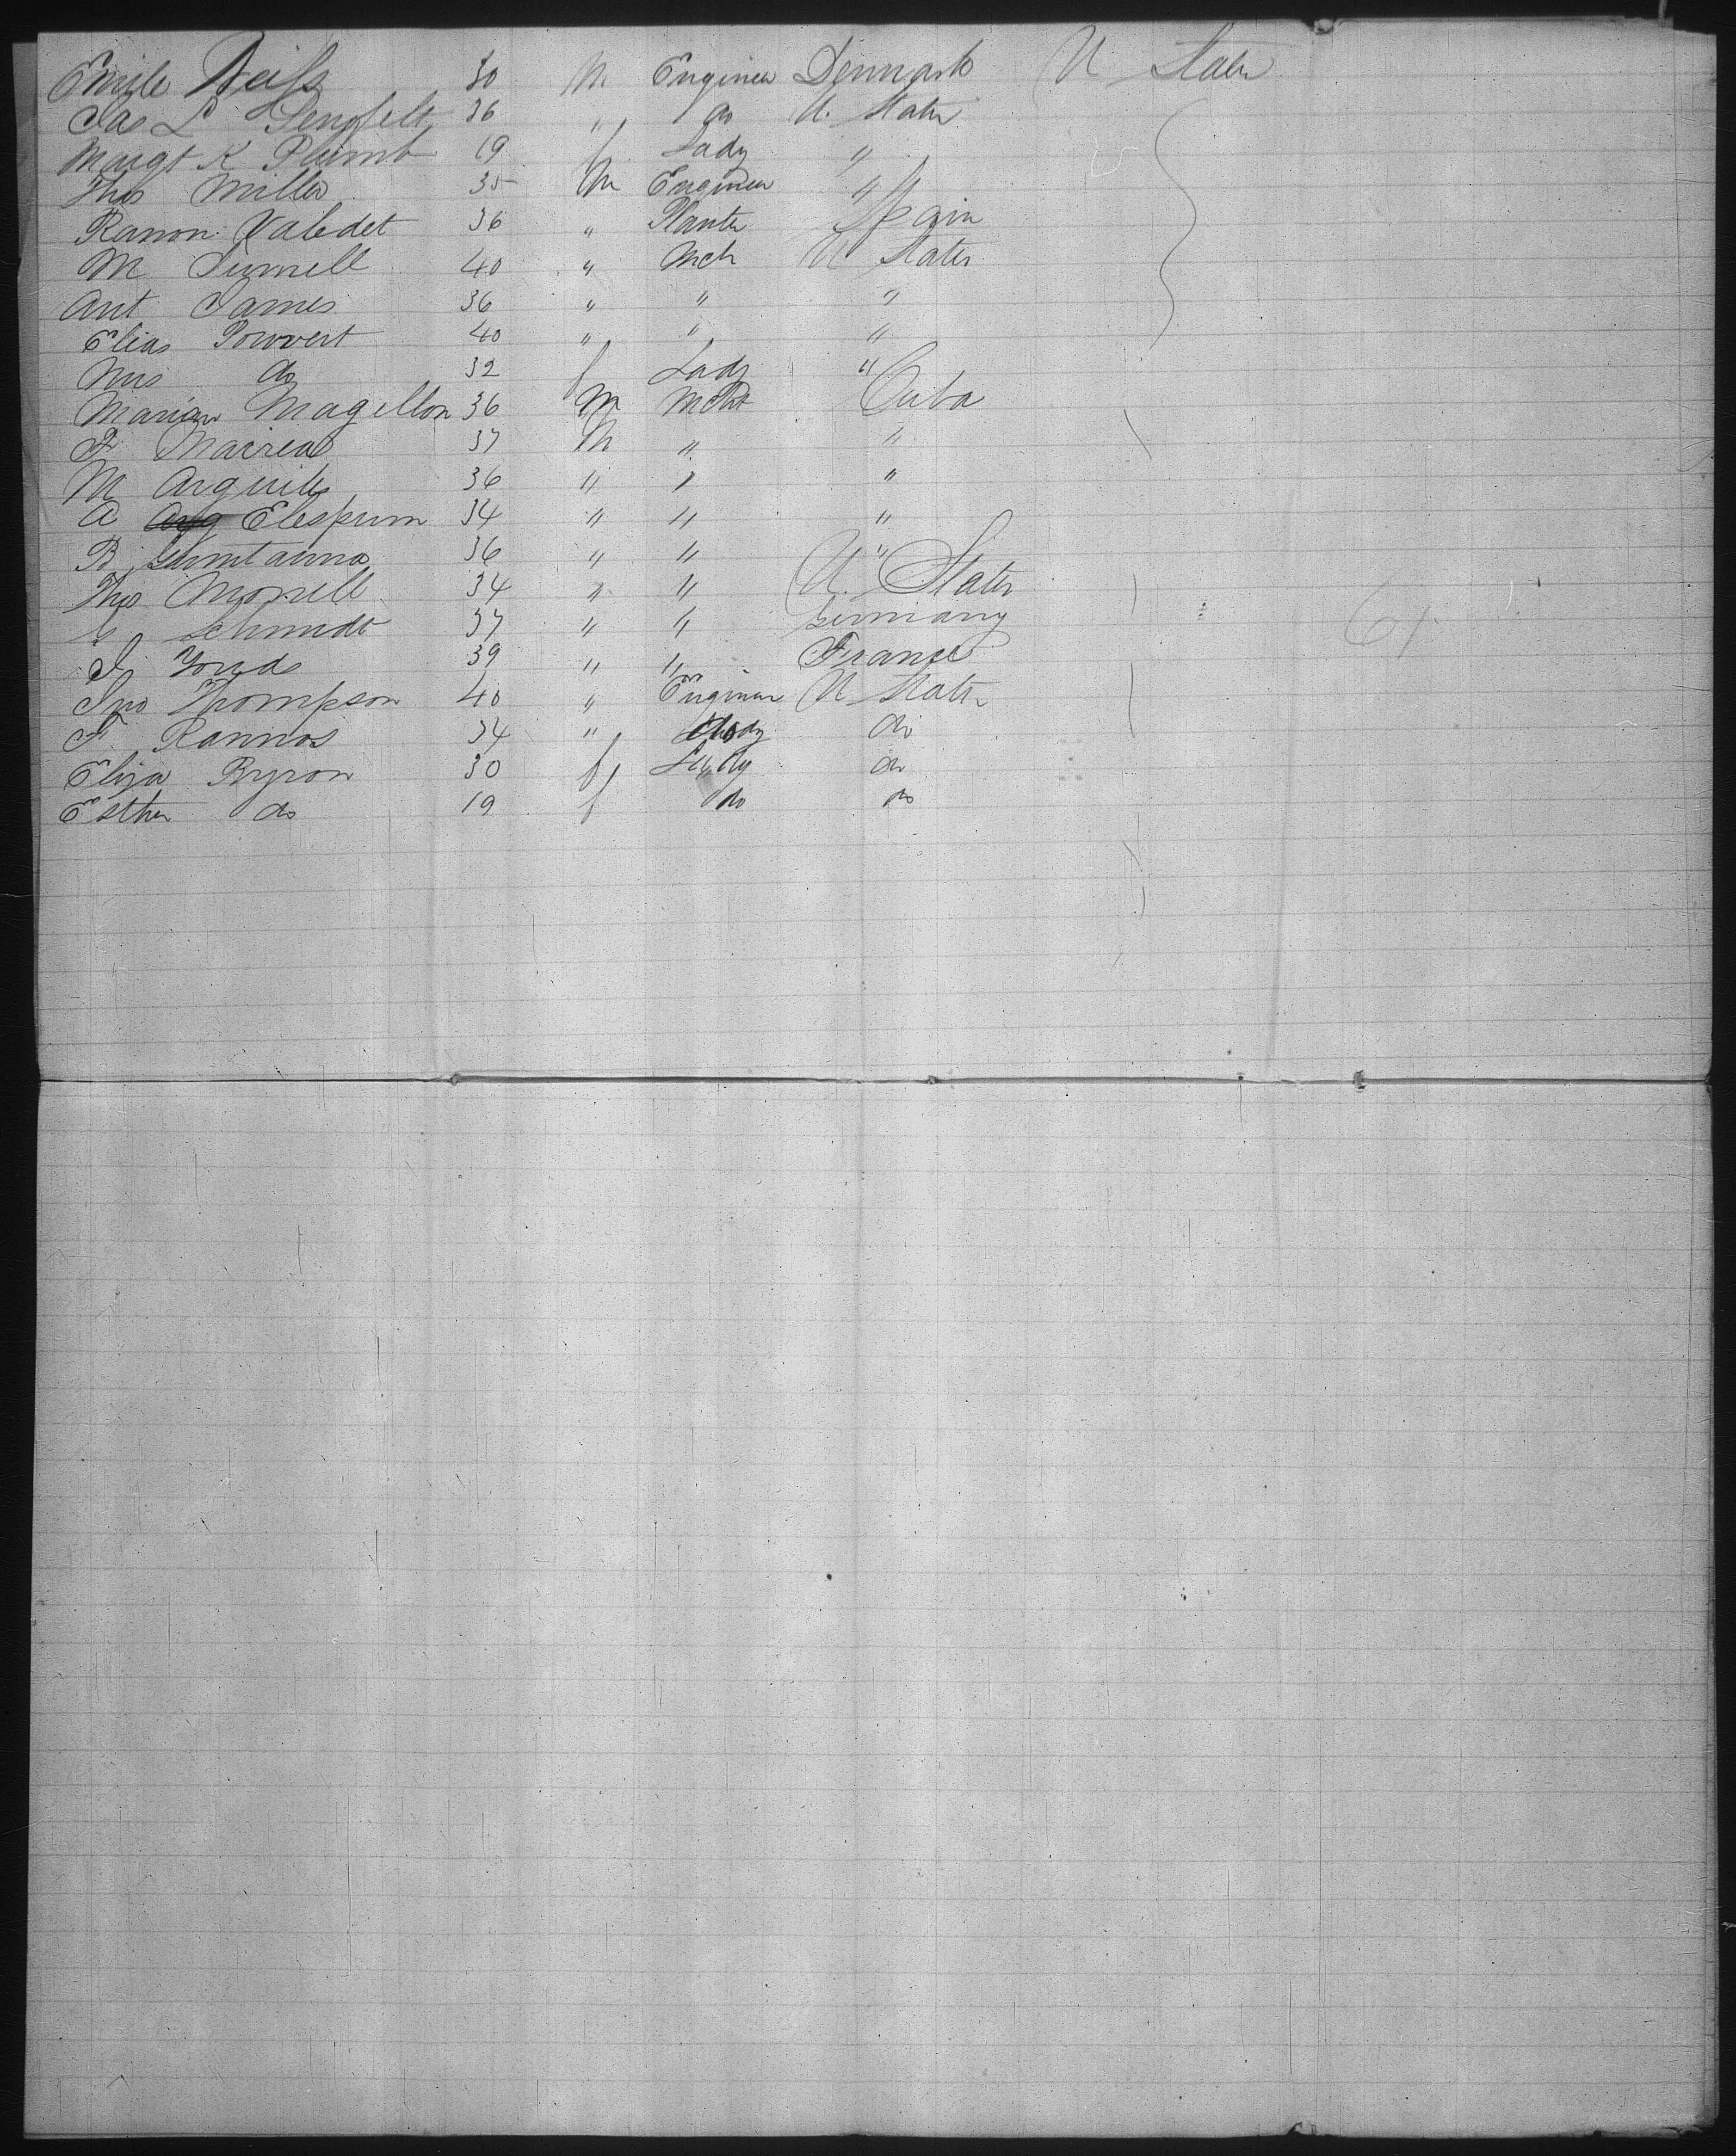 Emile Weiss 30 M Engineer Denmark U States
Jas L Lengfelt 36 " do U. States
Margt K Plumb 19 f Lady "
Thos Miller 35 M Engineer "
Ramon Valedet 36 " Planter Spain
M 40 " Mch U States
Ant James 36 " " "
Elias Pouvert 40 " " "
Mrs do 32 f Lady "
Marian Magellon 36 M Mcht Cuba
F 37 M " "
M Arguiles 36 " " "
A Arg Elespurn 34 " " "
B 36 " " "
Thos Morrell 34 " " U. States
Schmidt 37 " " Germany
J 39 " " France
Jno Thompson 40 " Engineer U States
F. Ramos 34 " do
Eliza Byron 30 f Lady do
Esther do 19 f do do
61